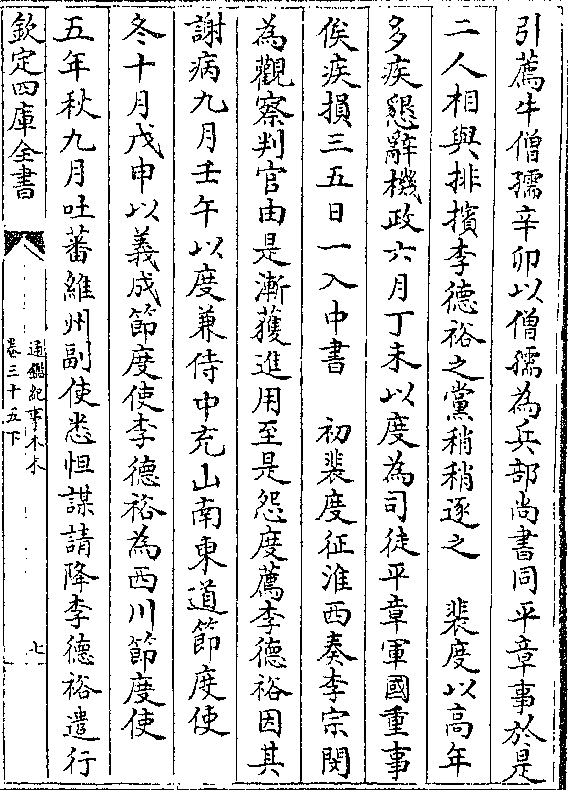 引薦牛僧孺辛卯以僧孺為兵部尚書同平章事於是
二人相與排擯李德裕之黨稍稍逐之　裴度以高年
多疾懇辭機政六月丁未以度為司徒平章軍國重事
俟疾損三五日一入中書　初裴度征淮西奏李宗閔
為觀察判官由是漸獲進用至是怨度薦李德裕因其
謝病九月壬午以度兼侍中充山南東道節度使
冬十月戊申以義成節度使李德裕為西川節度使
五年秋九月吐蕃維州副使悉怛謀請降李德裕遣行
欽定四庫全書
通鑑紀事本末
卷三十五下
七